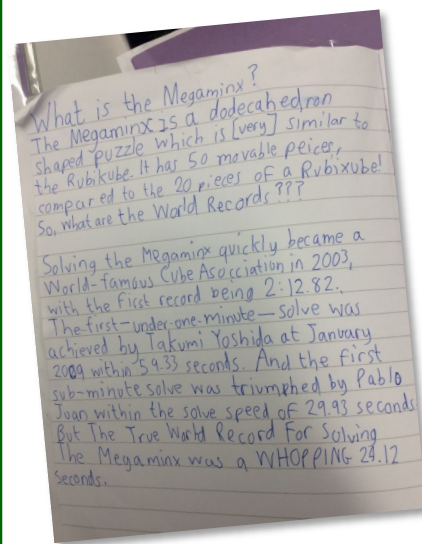 What is the Megaminx?
The Megaminx is a dodecahedron
shaped puzzle which is [very] similar to
the Rubikube. It has 50 movable peices,
compared to the 20 pieces of a Rubixube!
So, what are the World Records???
Solving the Megaminx quickly became a
World-famous Cube Asocciation in 2003,
with the first record being 2:12.82.
The first-under-one-minute-solve was
achieved by Takumi Yoshida at January
2009 within 59.33 seconds. And the first
sub-minute solve was triumphed by Pablo
Juan within the solve speed of 29.93 seconds
But The True World Record For Solving
The Megaminx was a WHOPPING 29.12
Seconds.